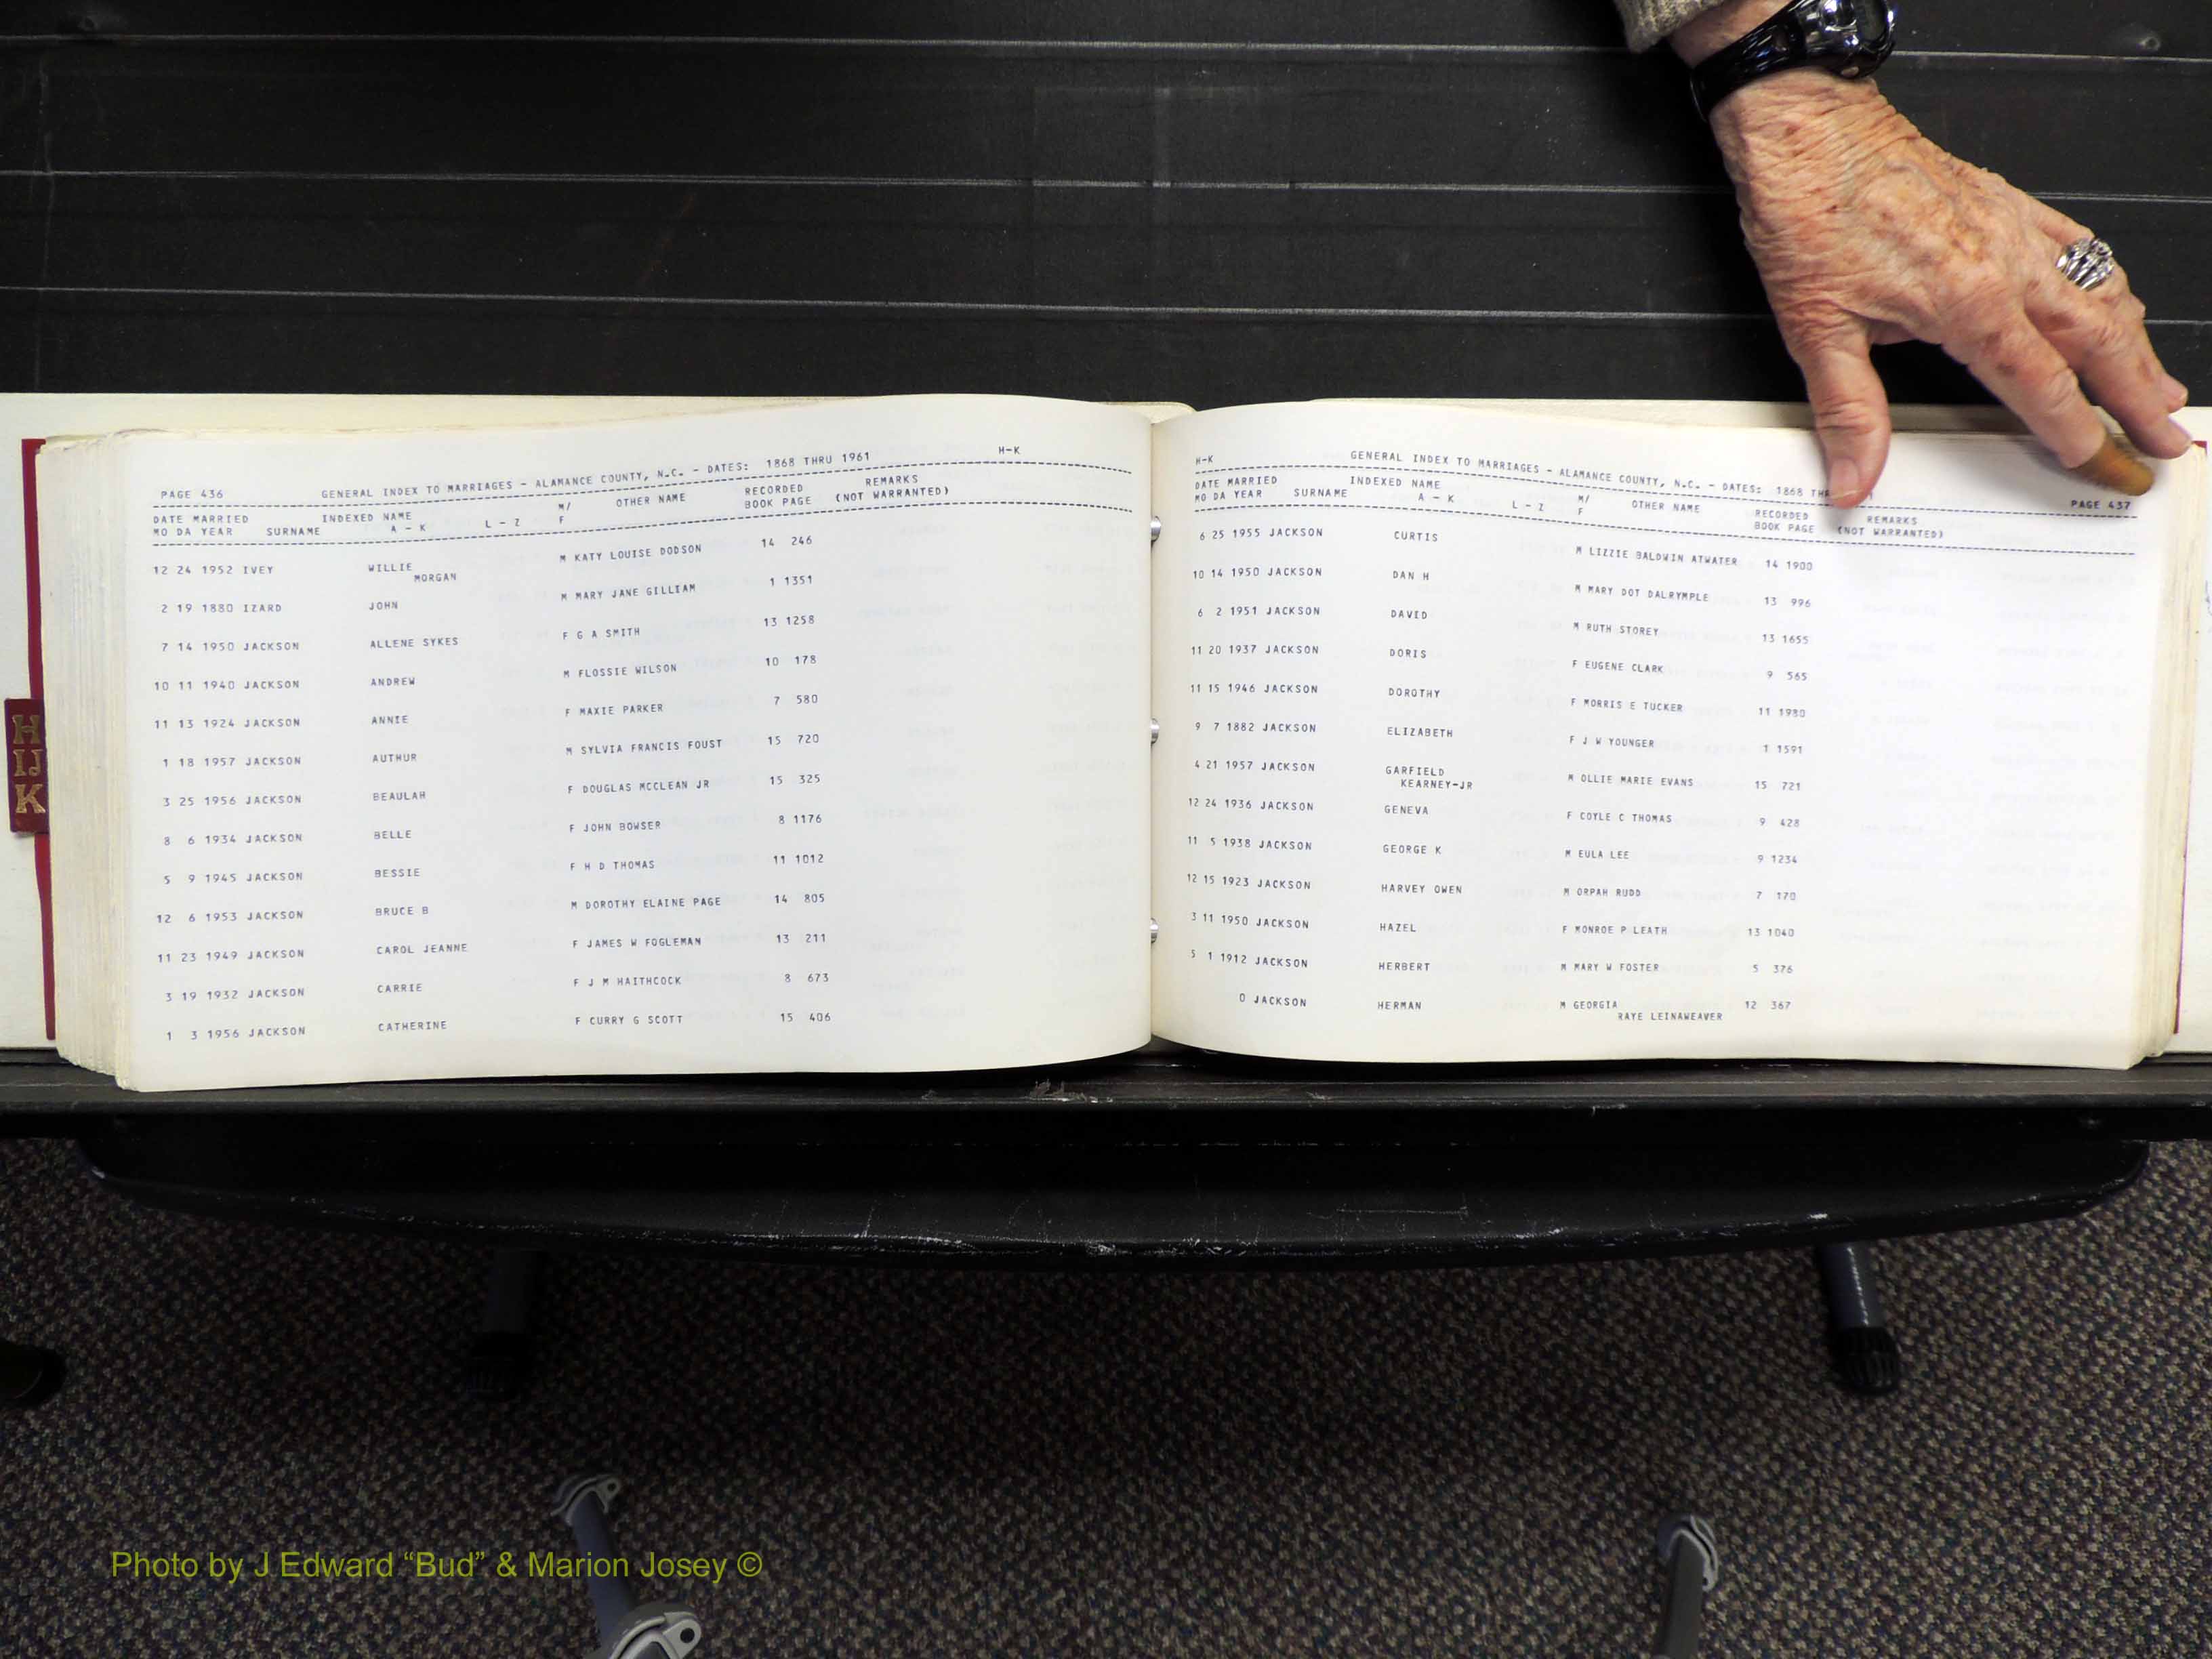 H-K
PAGE 436 GENERAL INDEX TO MARRIAGES - ALAMANCE COUNTY, N.C. - DATES: 1868 THRU 1961
DATE MARRIED INDEXED NAME M/ OTHER NAME RECORDED REMARKS
MO DA YEAR SURNAME A - K L - Z F BOOK PAGE (NOT WARRANTED)
12 24 1952 IVEY WILLIE M KATY LOUISE DODSON 14 246
MORGAN
2 19 1880 IZARD JOHN M MARY JANE GILLIAM 1 1351
7 14 1950 JACKSON ALLENE SYKES F G A SMITH 13 1258
10 11 1940 JACKSON ANDREW M FLOSSIE WILSON 10 178
11 13 1924 JACKSON ANNIE F MAXIE PARKER 7 580
1 18 1957 JACKSON AUTHUR M SYLVIA FRANCIS FOUST 15 720
3 25 1956 JACKSON BEAULAH F DOUGLAS MCCLEAN JR 15 325
8 6 1934 JACKSON BELLE F JOHN BOWSER 8 1176
5 9 1945 JACKSON BESSIE F H D THOMAS 11 1012
12 6 1953 JACKSON BRUCE B M DOROTHY ELAINE PAGE 14 805
11 23 1949 JACKSON CAROL JEANNE F JAMES W FOGLEMAN 13 211
3 19 1932 JACKSON CARRIE F J M HAITHCOCK 8 673
1 3 1956 JACKSON CATHERINE F CURRY G SCOTT 15 406
H
IJ
K
H-K GENERAL INDEX TO MARRIAGES - ALAMANCE COUNTY, N.C. - DATES: 1868 PAGE 437
DATE MARRIED INDEXED NAME M/ OTHER NAME RECORDED REMARKS
MO DA YEAR SURNAME A - K L - Z F BOOK PAGE (NOT WARRANTED)
6 25 1955 JACKSON CURTIS M LIZZIE BALDWIN ATWATER 14 1900
10 14 1950 JACKSON DAN H M MARY DOT DALRYMPLE 13 996
6 2 1951 JACKSON DAVID M RUTH STOREY 13 1655
11 20 1937 JACKSON DORIS F EUGENE CLARK 9 565
11 15 1946 JACKSON DOROTHY F MORRIS E TUCKER 11 1980
9 7 1882 JACKSON ELIZABETH F J W YOUNGER 1 1591
4 21 1957 JACKSON GARFIELD M OLLIE MARIE EVANS 15 721
KEARNEY-JR
12 24 1936 JACKSON GENEVA F COYLE C THOMAS 9 428
11 5 1938 JACKSON GEORGE K M EULA LEE 9 1234
12 15 1923 JACKSON HARVEY OWEN M ORPAH RUDD 7 170
3 11 1950 JACKSON HAZEL F MONROE P LEATH 13 1040
5 1 1912 JACKSON HERBERT M MARY W FOSTER 5 376
0 JACKSON HERMAN M GEORGIA 12 367
RAYE LEINAWEAVER
Photo by J Edward “Bud” & Marion Josey ©